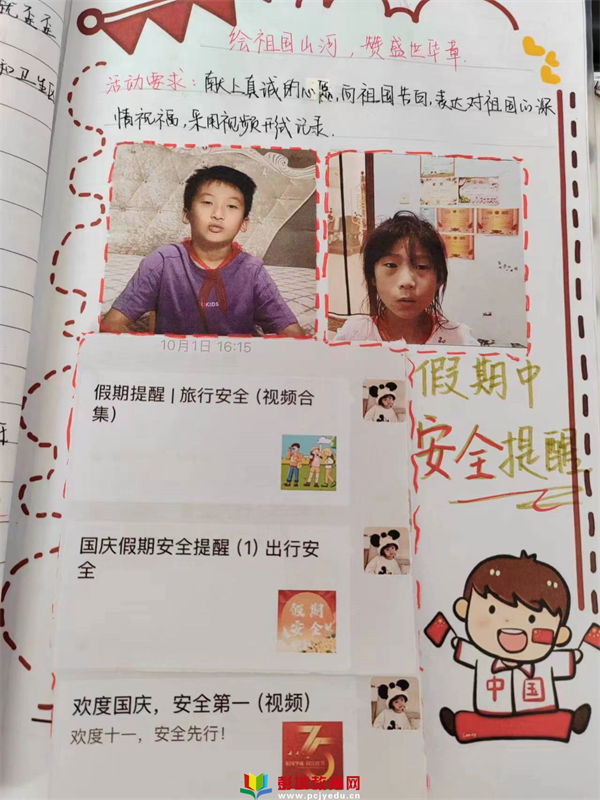 绘祖国山河，赞盛世华章.
活动要求：献上真诚的心愿，向祖国告白，表达对祖国的深
情祝福，采用视频形式记录.
KIDS
10月1日 16:15
假期提醒 | 旅行安全 (视频合
集)
国庆假期安全提醒 (1) 出行安
全
假期
安全
欢度国庆，安全第一 (视频)
欢度十一，安全先行！
75
假期中
安全提醒
中国
彭城教育网
www.pcjyedu.cn